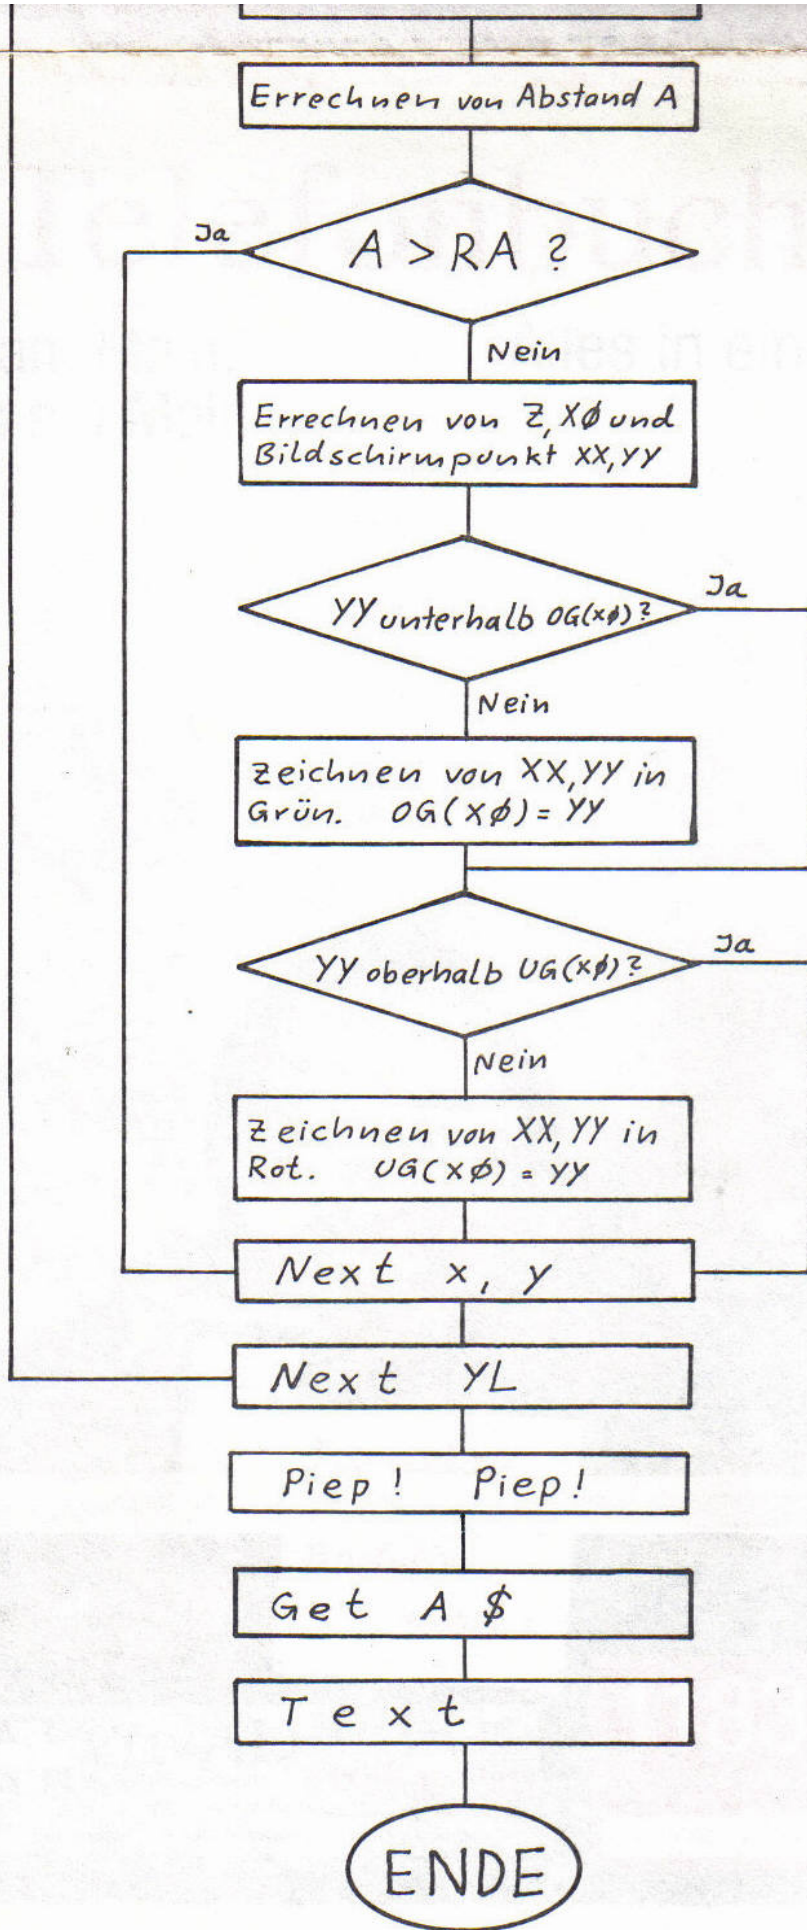 Errechnen von Abstand A
Ja
A > RA ?
Nein
Errechnen von Z, XØ und
Bildschirmpunkt XX, YY
YY unterhalb OG(XØ)?
Ja
Nein
Zeichnen von XX, YY in
Grün. OG(XØ) = YY
YY oberhalb UG(XØ)?
Ja
Nein
Zeichnen von XX, YY in
Rot. UG(XØ) = YY
Next x, y
Next YL
Piep! Piep!
Get A $
Text
ENDE